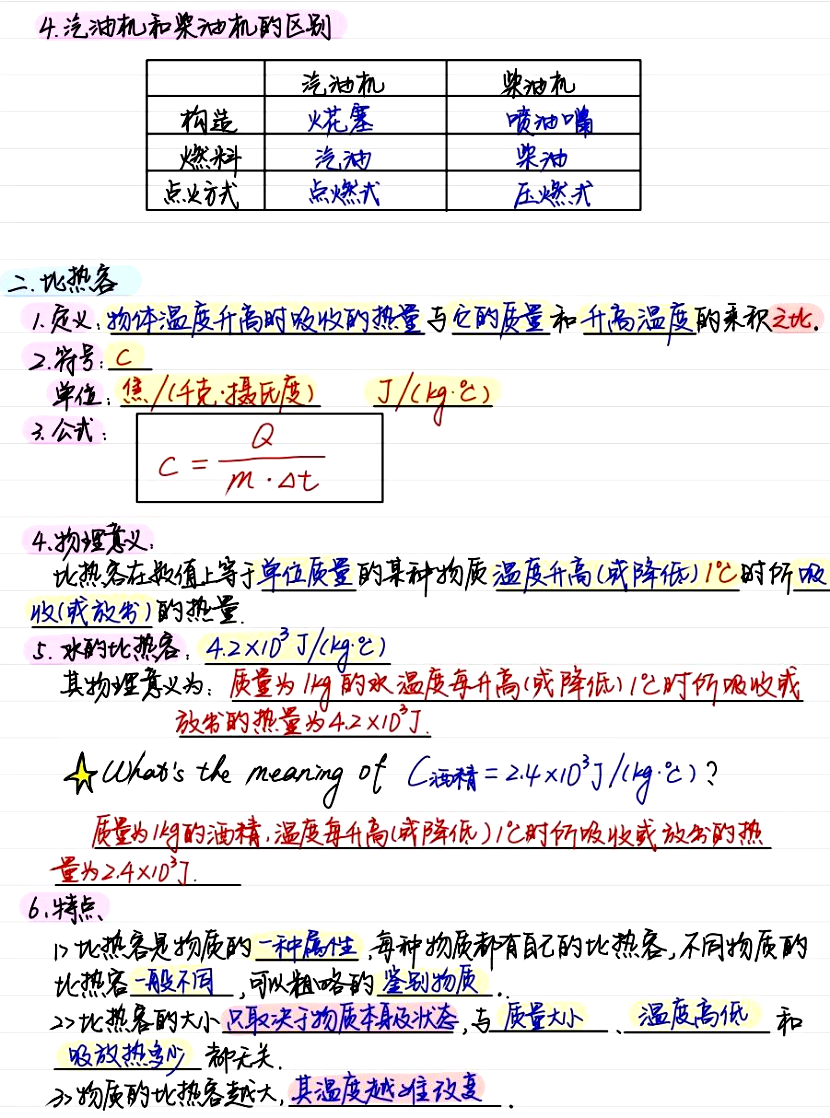 4.汽油机和柴油机的区别
汽油机 柴油机
构造 火花塞 喷油嘴
燃料 汽油 柴油
点火方式 点燃式 压燃式
二.比热容
1.定义:物体温度升高时吸收的热量与它的质量和升高温度的乘积之比.
2.符号:C
单位:焦/(千克·摄氏度) J/(kg·℃)
3.公式: C = Q / m·△t
4.物理意义:
比热容在数值上等于单位质量的某种物质温度升高(或降低)1℃时所吸
收(或放出)的热量.
5.水的比热容:4.2×10³J/(kg·℃)
其物理意义为:质量为1kg的水温度每升高(或降低)1℃时所吸收或
放出的热量为4.2×10³J.
What's the meaning of C酒精=2.4×10³J/(kg·℃)?
质量为1kg的酒精,温度每升高(或降低)1℃时所吸收或放出的热
量为2.4×10³J.
6.特点
1>比热容是物质的一种属性,每种物质都有自己的比热容,不同物质的
比热容一般不同,可以粗略的鉴别物质.
2>比热容的大小只取决于物质本身及状态,与质量大小、温度高低和
吸放热多少都无关.
3>物质的比热容越大,其温度越难改变.